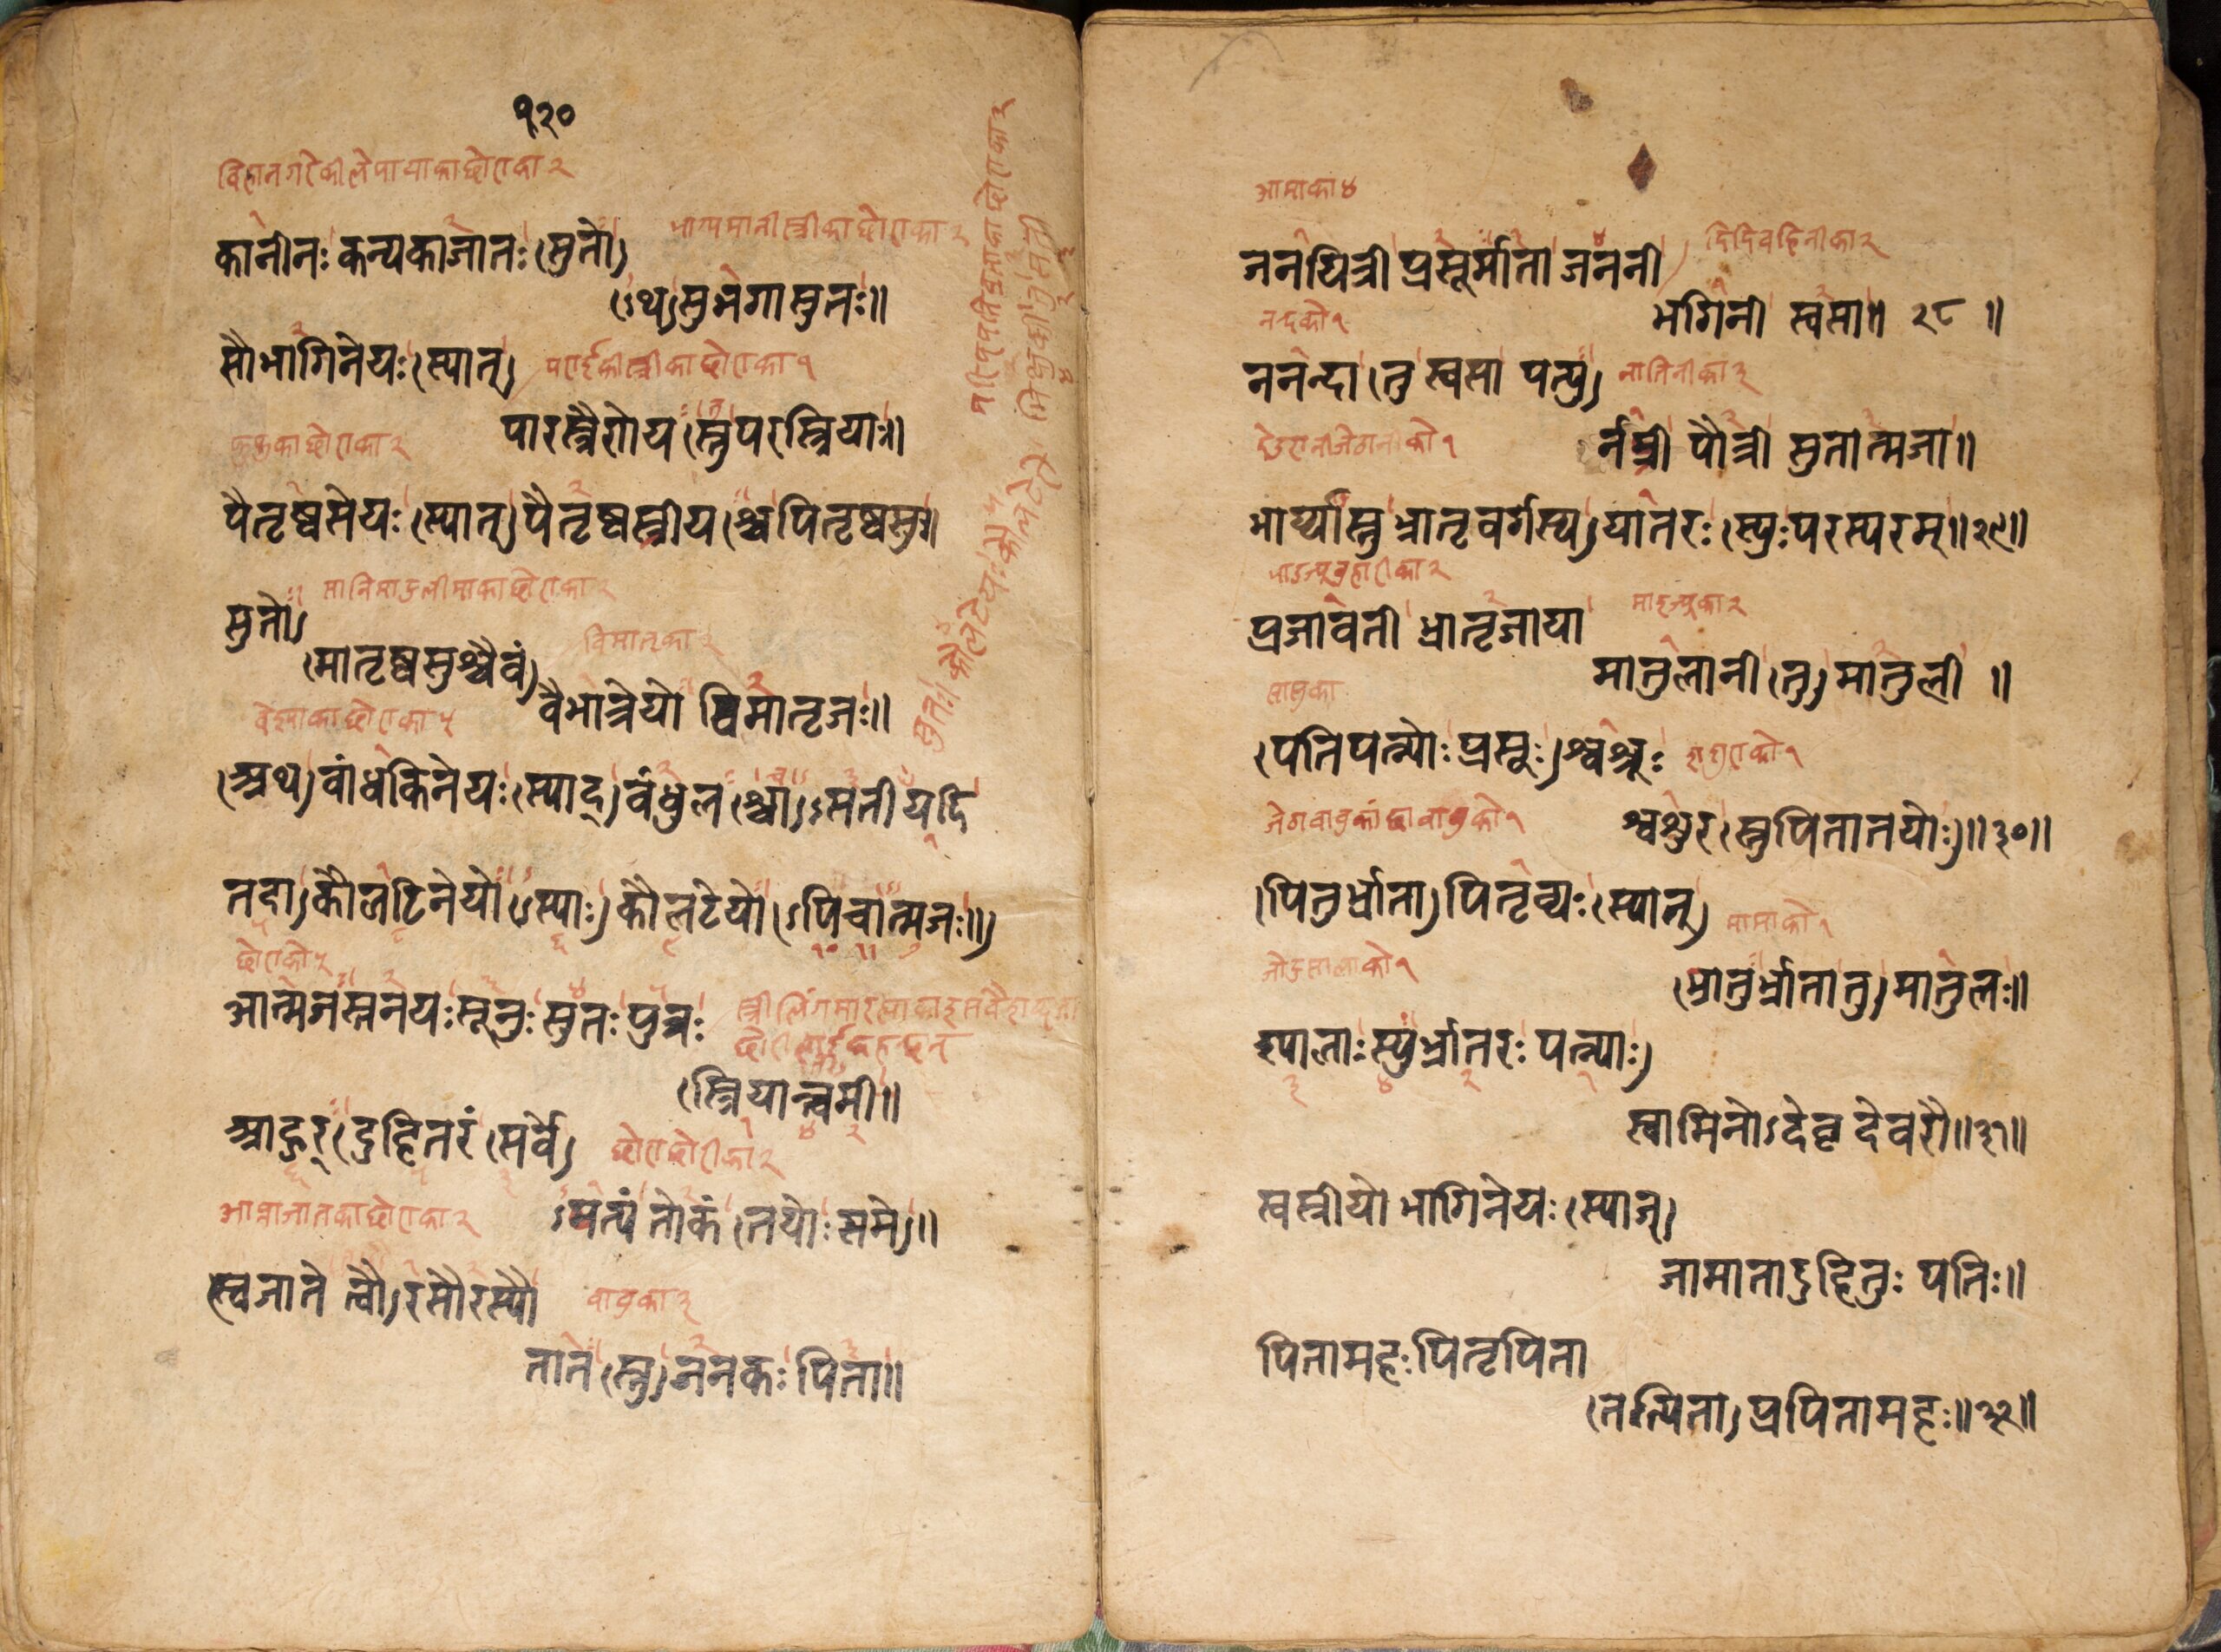 १२०
विहानगरेकीलेपायाकाछोराका२
कानीनः कन्यकाजातः सुतो
भाग्यमानीस्त्रीकाछोराका२
ऽथ सुभगासुतः॥
सौभागिनेयः स्यात्
पराईकीस्त्रीकाछोराका१
पारस्त्रैणेयस्तु परस्त्रियाः॥
छोराका२
पैतृष्वसेयः स्यात् पैतृष्वस्त्रीयश्च पितृष्वसुः॥
सुतो
छोराका२
मातृष्वसुश्चैवं
विमातृका२
वैमात्रेयो विमातृजः॥
वेश्याकाछोराका५
अथ बांधकिनेयः स्याद् बंधुलश्चाऽसती यदि
तदा कौलटिनेयोऽस्याः कौलटेयोऽपि चात्मजः॥
छोराको५
आत्मजस्तनयः सूनुः सुतः पुत्रः
स्त्रियान्त्वमी॥
आहुर् दुहितरं सर्वे
छोराछोरीका२
ऽपत्यं तोकं तयोः समे॥
छोराका२
स्वजाते त्वौरसौरस्यौ
बाबुका३
तातस्तु जनकः पिता॥
आमाका४
जनयित्री प्रसूर्माता जननी
दिदिबहिनीका२
भगिनी स्वसा॥ २८ ॥
नन्दको१
ननन्दा तु स्वसा पत्यु
नातिनीका३
र्नप्त्री पौत्री सुतात्मजा॥
देउरानीजेठानीको१
भार्य्यास्तु भ्रातृवर्गस्य यातरः स्युः परस्परम्॥२९॥
प्रजावती भ्रातृजाया
माइज्यूका२
मातुलानी तु मातुली ॥
सासुका
पतिपत्न्योः प्रसूः श्वश्रूः
ससुराको१
श्वशुरस्तु पिता तयोः॥३०॥
जेठाबाबुकांछाबाबुको१
पितुर्भ्राता पितृव्यः स्यात्
मामाको१
मातुर्भ्राता तु मातुलः॥
जोइसालाको१
श्यालाः स्युर्भ्रातरः पत्न्याः
स्वामिनोऽदेवृ देवरौ॥३१॥
स्वस्त्रीयो भागिनेयः स्याज्
जामाता दुहितुः पतिः॥
पितामहः पितृपिता
तत्पिता प्रपितामहः॥३२॥